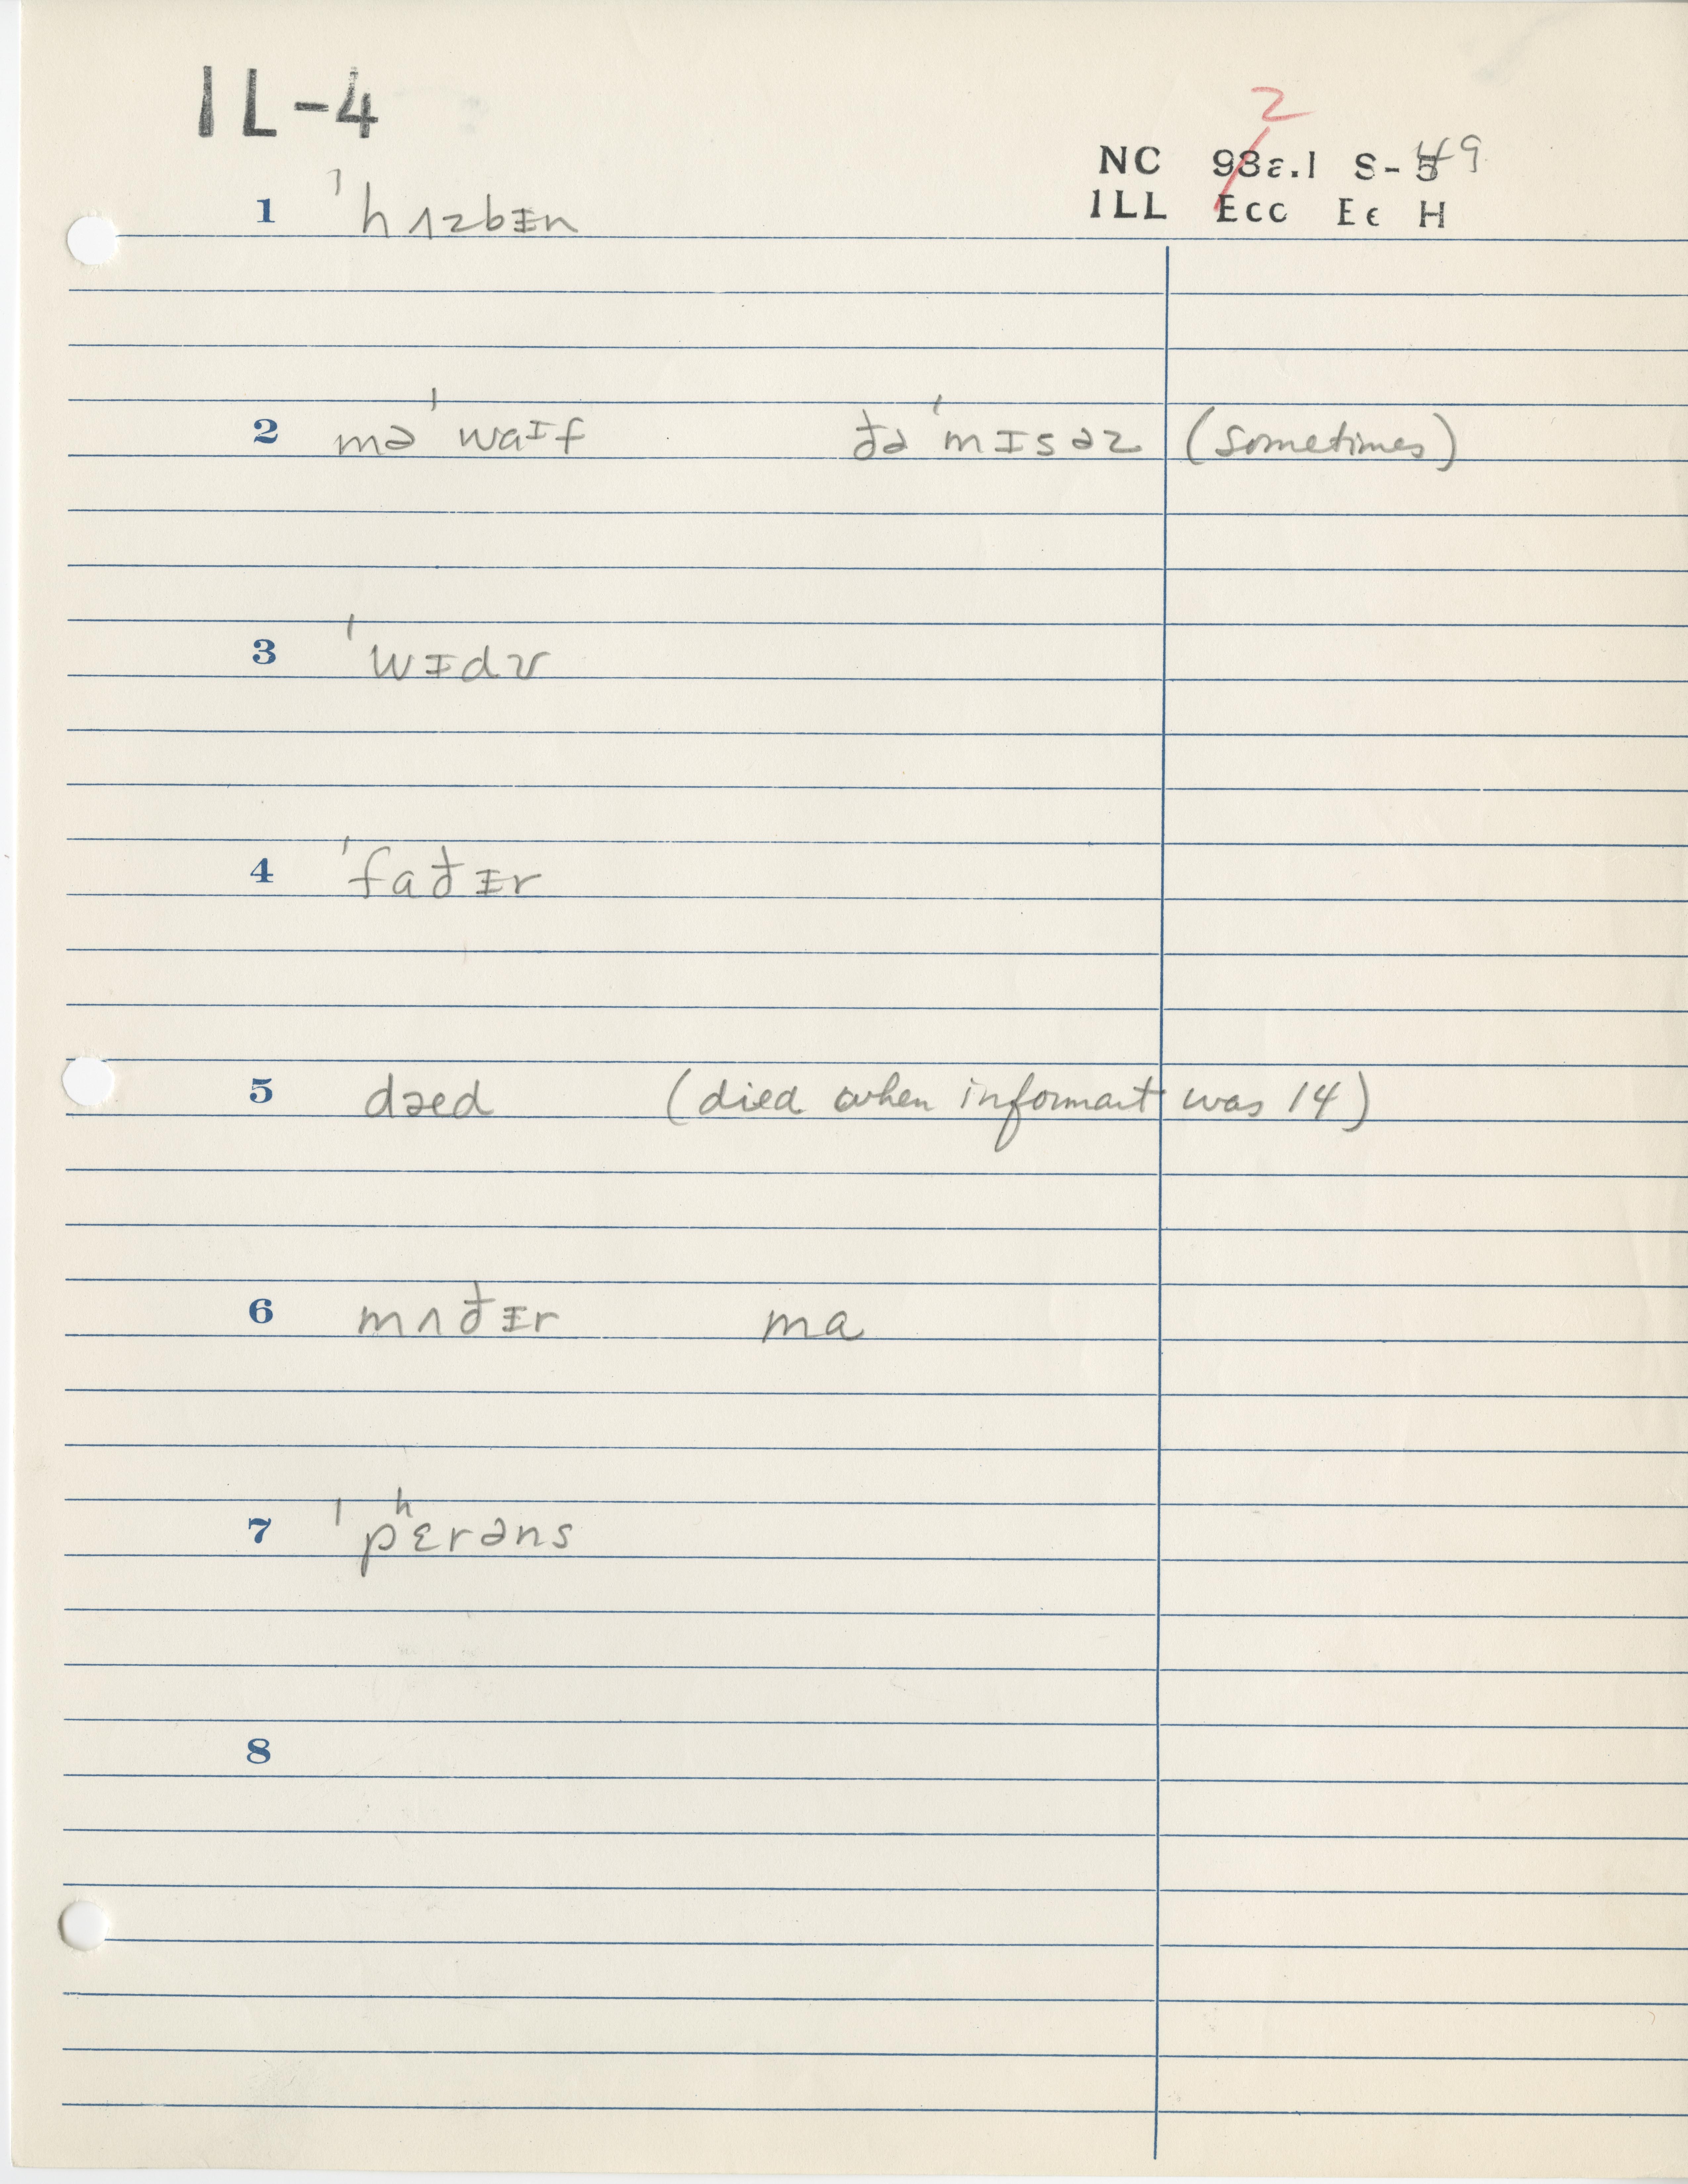 IL-4
2
NC 93a.1 S-49
ILL Ecc Ec H
1 ˈhʌzbᵻn
2 mə ˈwaɪf ðə ˈmɪsəz (sometimes)
3 ˈwᵻdɤ
4 ˈfaðᵻr
5 dæd (died when informant was 14)
6 mʌðᵻr ma
7 ˈpʰɛrəns
8